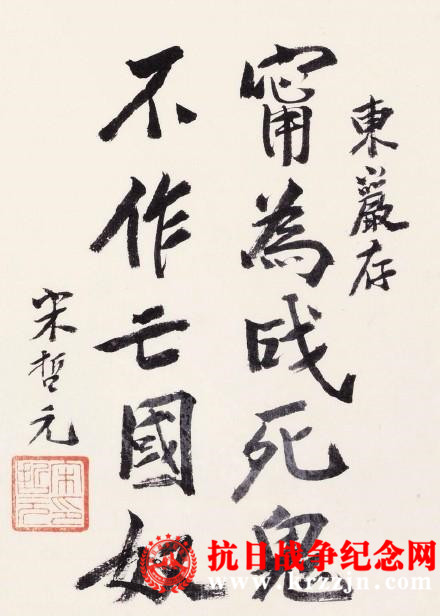 東巖存
甯為战死鬼
不作亡國奴
宋哲元
抗日战争纪念网
www.krzzjn.com